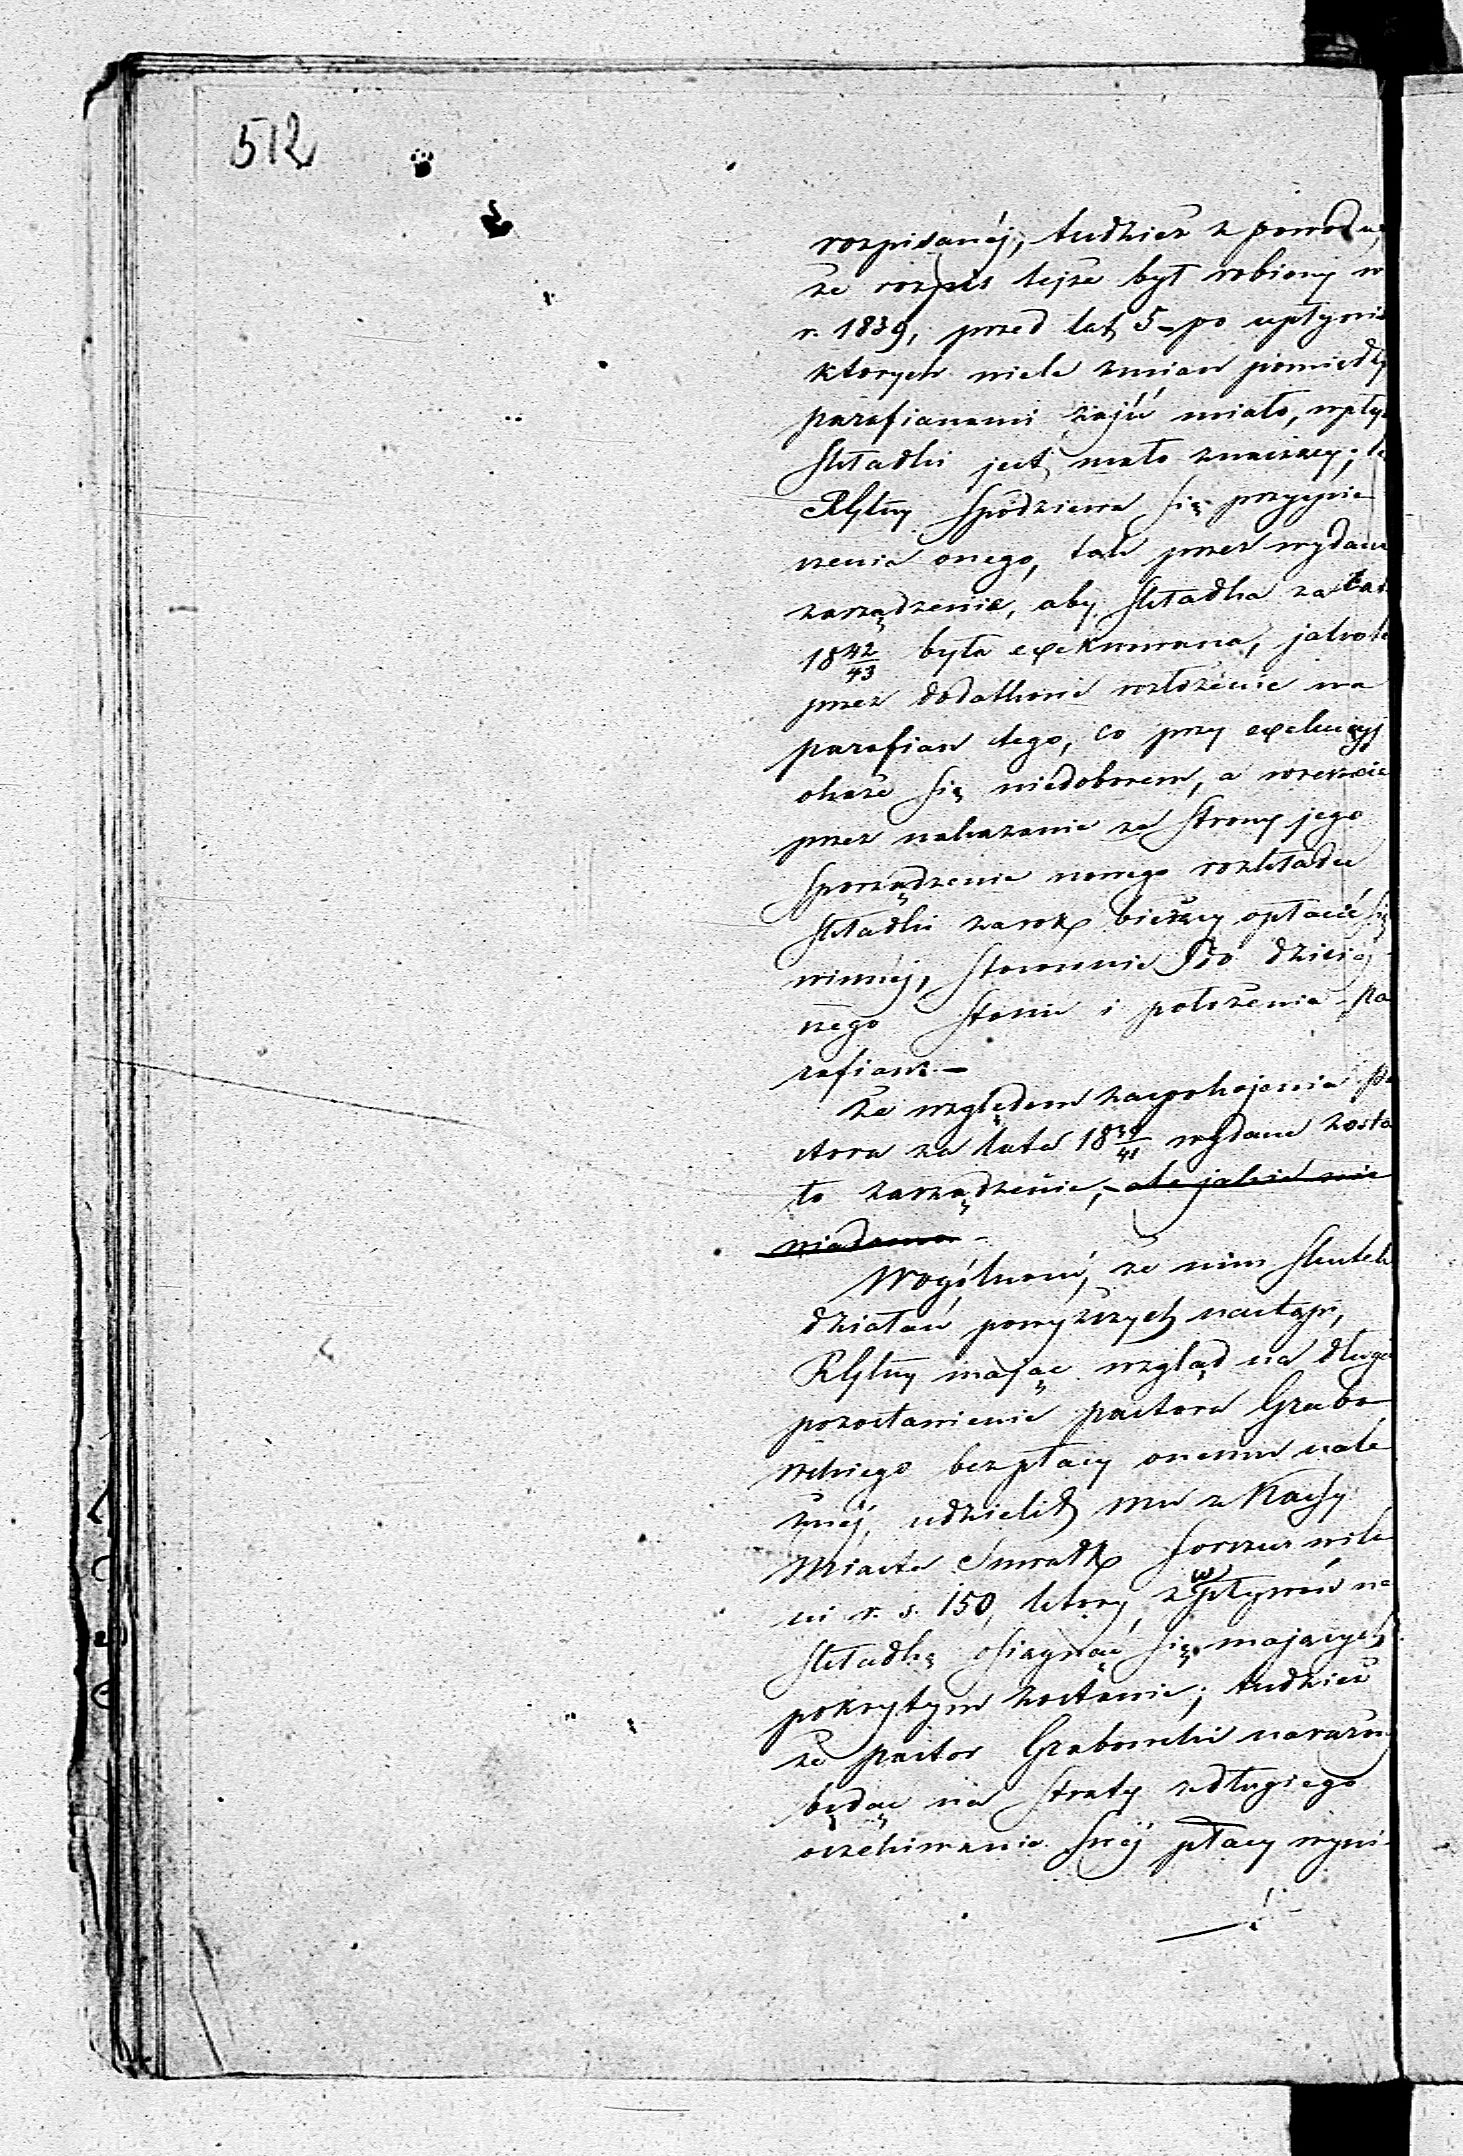 512
rozpisanéj, tudzież z powodu,
że rozpis tejże był robiony w
r. 1839, przed lat 5 – po upływie
ktorych wiele zmian pomiędzy
parafianami zajść miało, wpły
składki jest mało znaczący;
Rząd spodziewa się przyspie
szenia onego, tak przez wydane
zarządzenie, aby składka za
1842/43 była exekwowana, jakoté
przez dodatkowe rozłożenie na
parafian tego, co przy exekucyj
okaże się niedoborem, a wreszcie
przez nakazanie ze strony jego
sporządzenia nowego rozkładu
składki za rok bieżący opłacić się
winnéj, stosownie do dzisiej
szego stanu i położenia pa
rafian. –
Ze względem zaspokojenia pa
stora za lata 1839/41 wydane zosta
ło zarządzenie, – ale jakie nie
wiadomo –
W ogólności, że nim skutek
działań powyższych nastąpi,
mając wzgląd na długie
pozostawienie pastora Grabo
wskiego bez płacy onemu nale
żnéj, udzielił mu z Kassy
Miasta Suwałk forszus w ilo
ści r. s. 150, który z wpływów na
składkę osiągnąć się mających
pokrytym zostanie; tudzież
że pastor Grabowski narażony
będąc na straty z długiego
oczekiwania swéj płacy wyni-